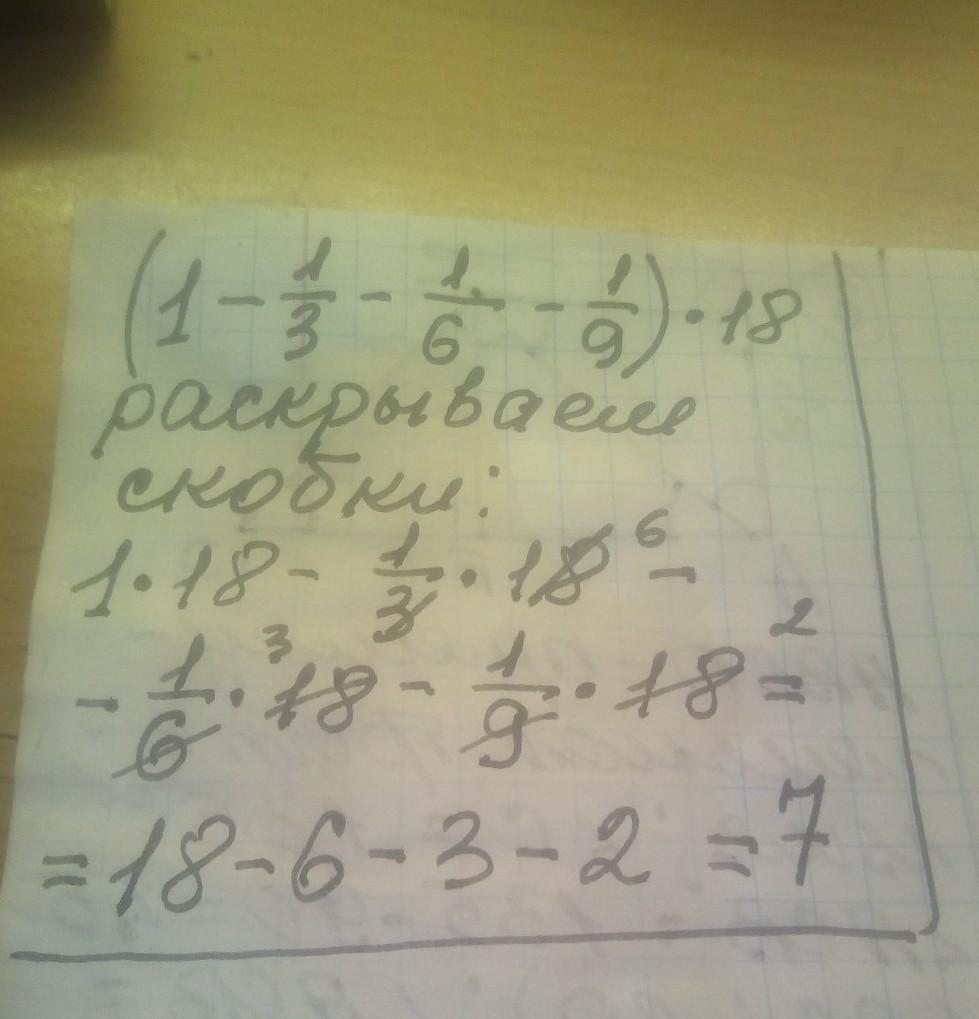 (1 - 1/3 - 1/6 - 1/9) · 18
раскрываем
скобки:
1 · 18 - 1/3 · 18 6 -
- 1/6 · 3 18 - 1/9 · 18 2 =
= 18 - 6 - 3 - 2 = 7